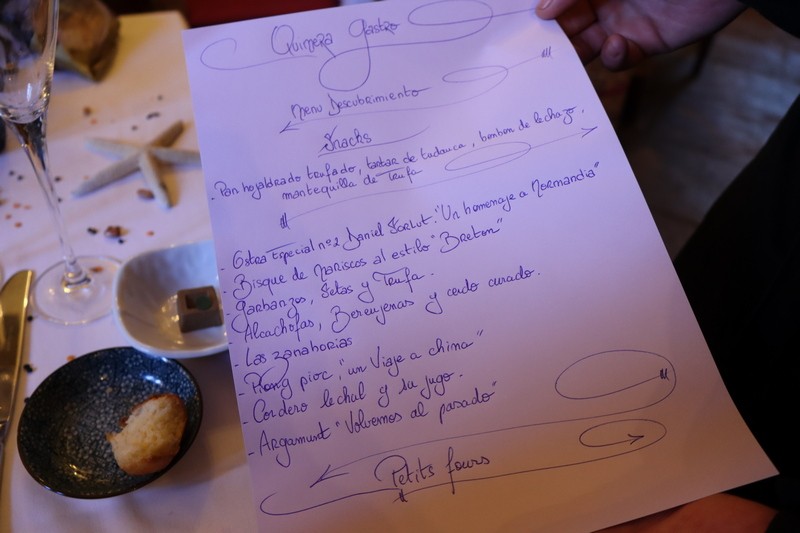 Quimera Gastro
Menu Descubrimiento
Snacks
. Pan hojaldrado trufado, tartar de tudanca, bombon de lechazo,
mantequilla de Trufa
- Ostra Especial nº2 Daniel Sorlut: "Un homenaje a Normandia"
- Bisque de Mariscos al estilo "Breton"
- Garbanzos, Setas y Trufa.
Alcachofas, Berenjenas y cerdo curado.
- Las zanahorias
- pioc, "un Viaje a china"
- Cordero lechal y su jugo.
- "Volvemos al pasado"
Petits fours